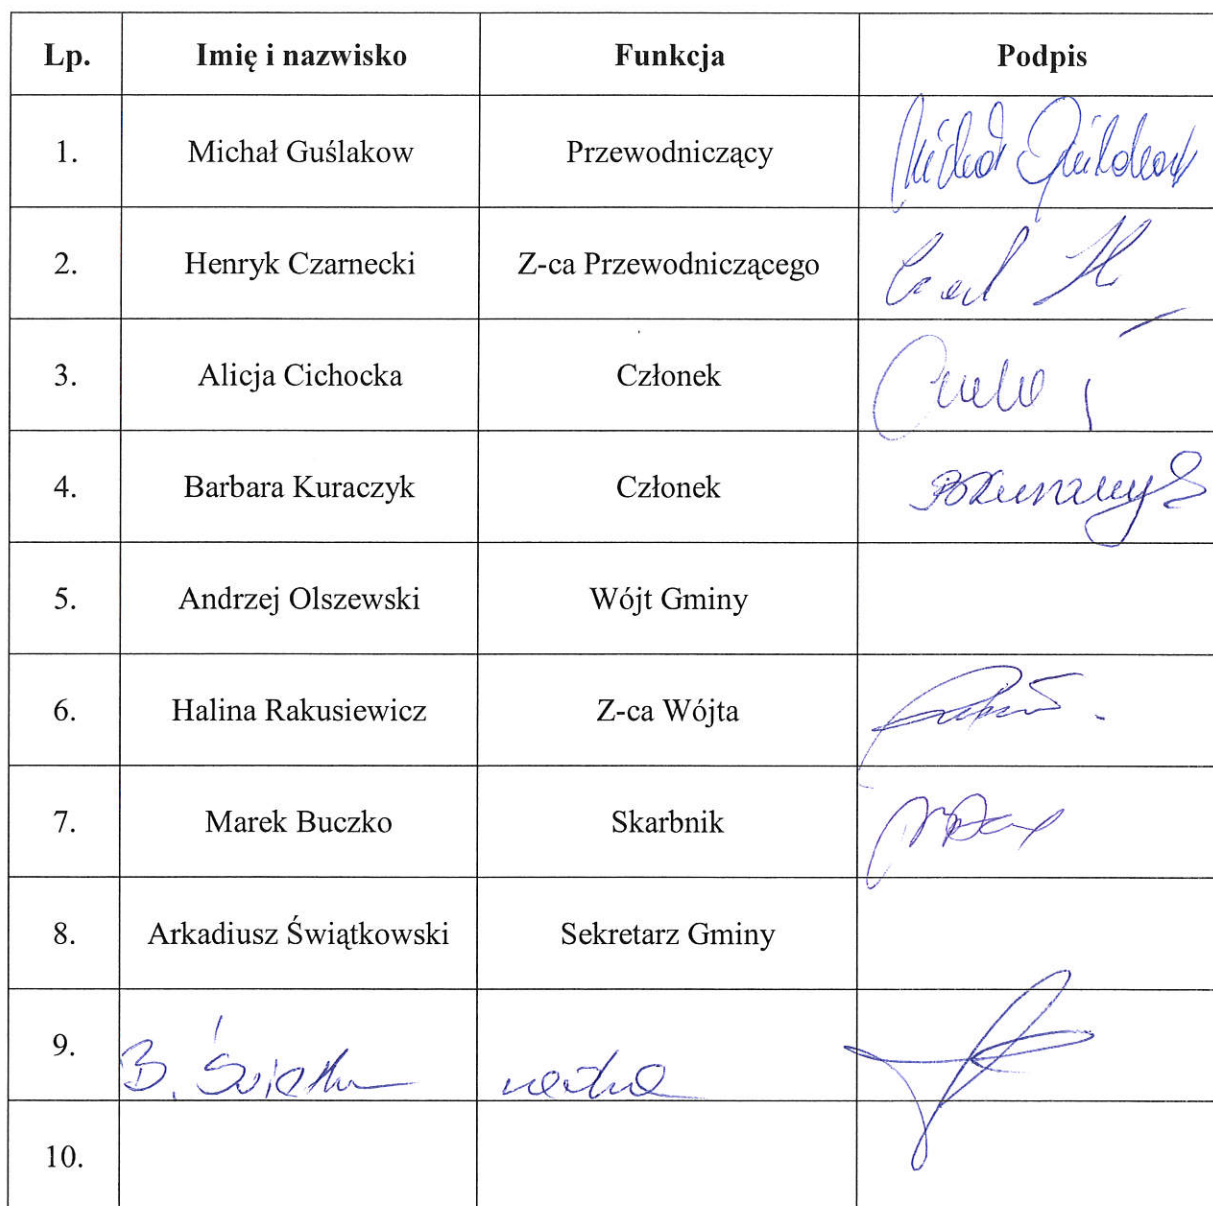 Lp. Imię i nazwisko Funkcja Podpis
1. Michał Guślakow Przewodniczący
2. Henryk Czarnecki Z-ca Przewodniczącego
3. Alicja Cichocka Członek
4. Barbara Kuraczyk Członek
5. Andrzej Olszewski Wójt Gminy
6. Halina Rakusiewicz Z-ca Wójta
7. Marek Buczko Skarbnik
8. Arkadiusz Świątkowski Sekretarz Gminy
9. B.
10.